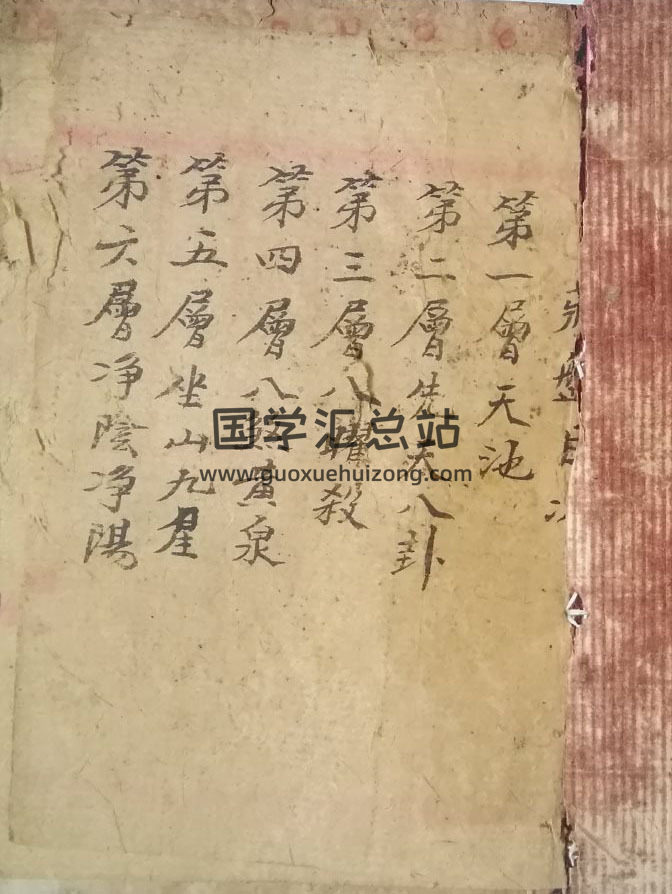 盤目次
第一層天池
第二層先天八卦
第三層八曜殺
第四層八殺黃泉
第五層坐山九星
第六層净陰净陽
国学汇总站
www.guoxuehuizong.com